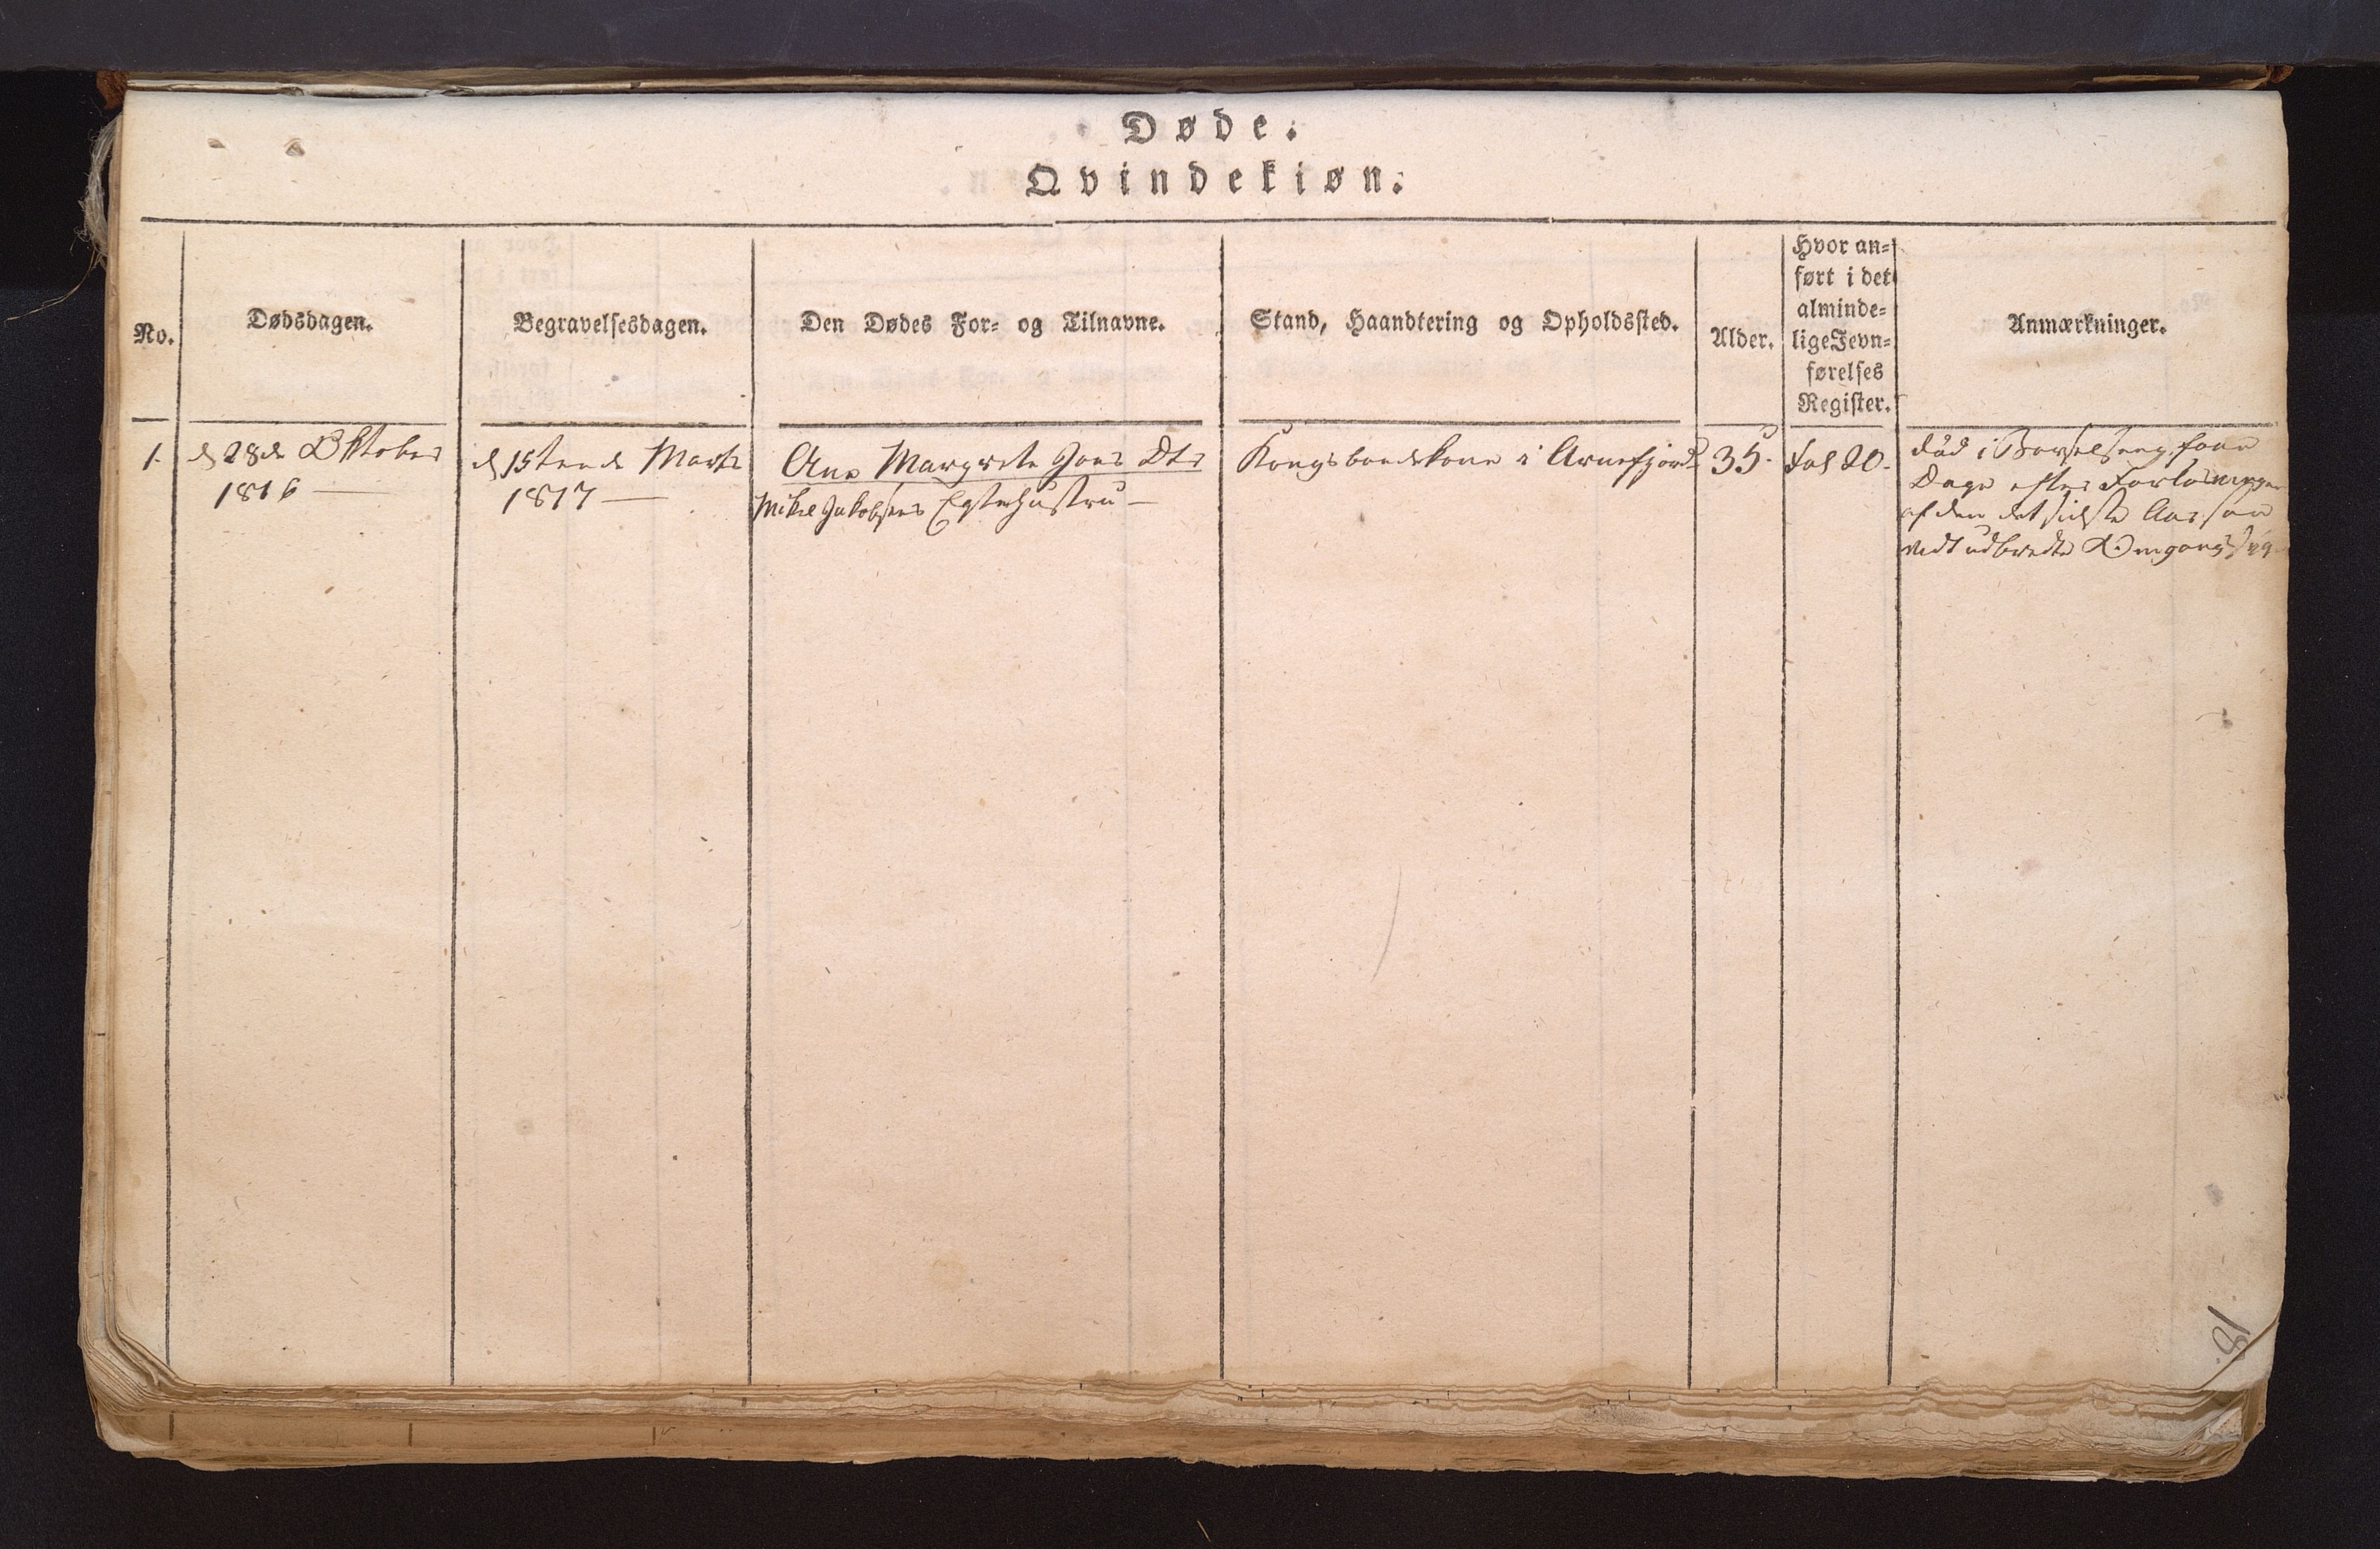 Døde.
Qvindekiøn.
No.
Dødsdagen.
Begravelsesdagen.
Den Dødes For- og Tilnavne.
Stand, Haandtering og Opholdssted.
Alder.
Hvor an-
ført i det
alminde-
lige Jevn-
førelses
Register.
Anmærkninger.
1.
d 28de Oktober
1816
d 15tende Marts
1817
Ane Margrete Jons Dtr
Mikel Jakobsens Egtehustru
Kongsbondekone i Arnefjord
35.
Fol 20.
død i Barselseng faae
Dage efter Forløsningen
af den det sidste Aar saa
vidt udbredte Omgangs Syg
81.